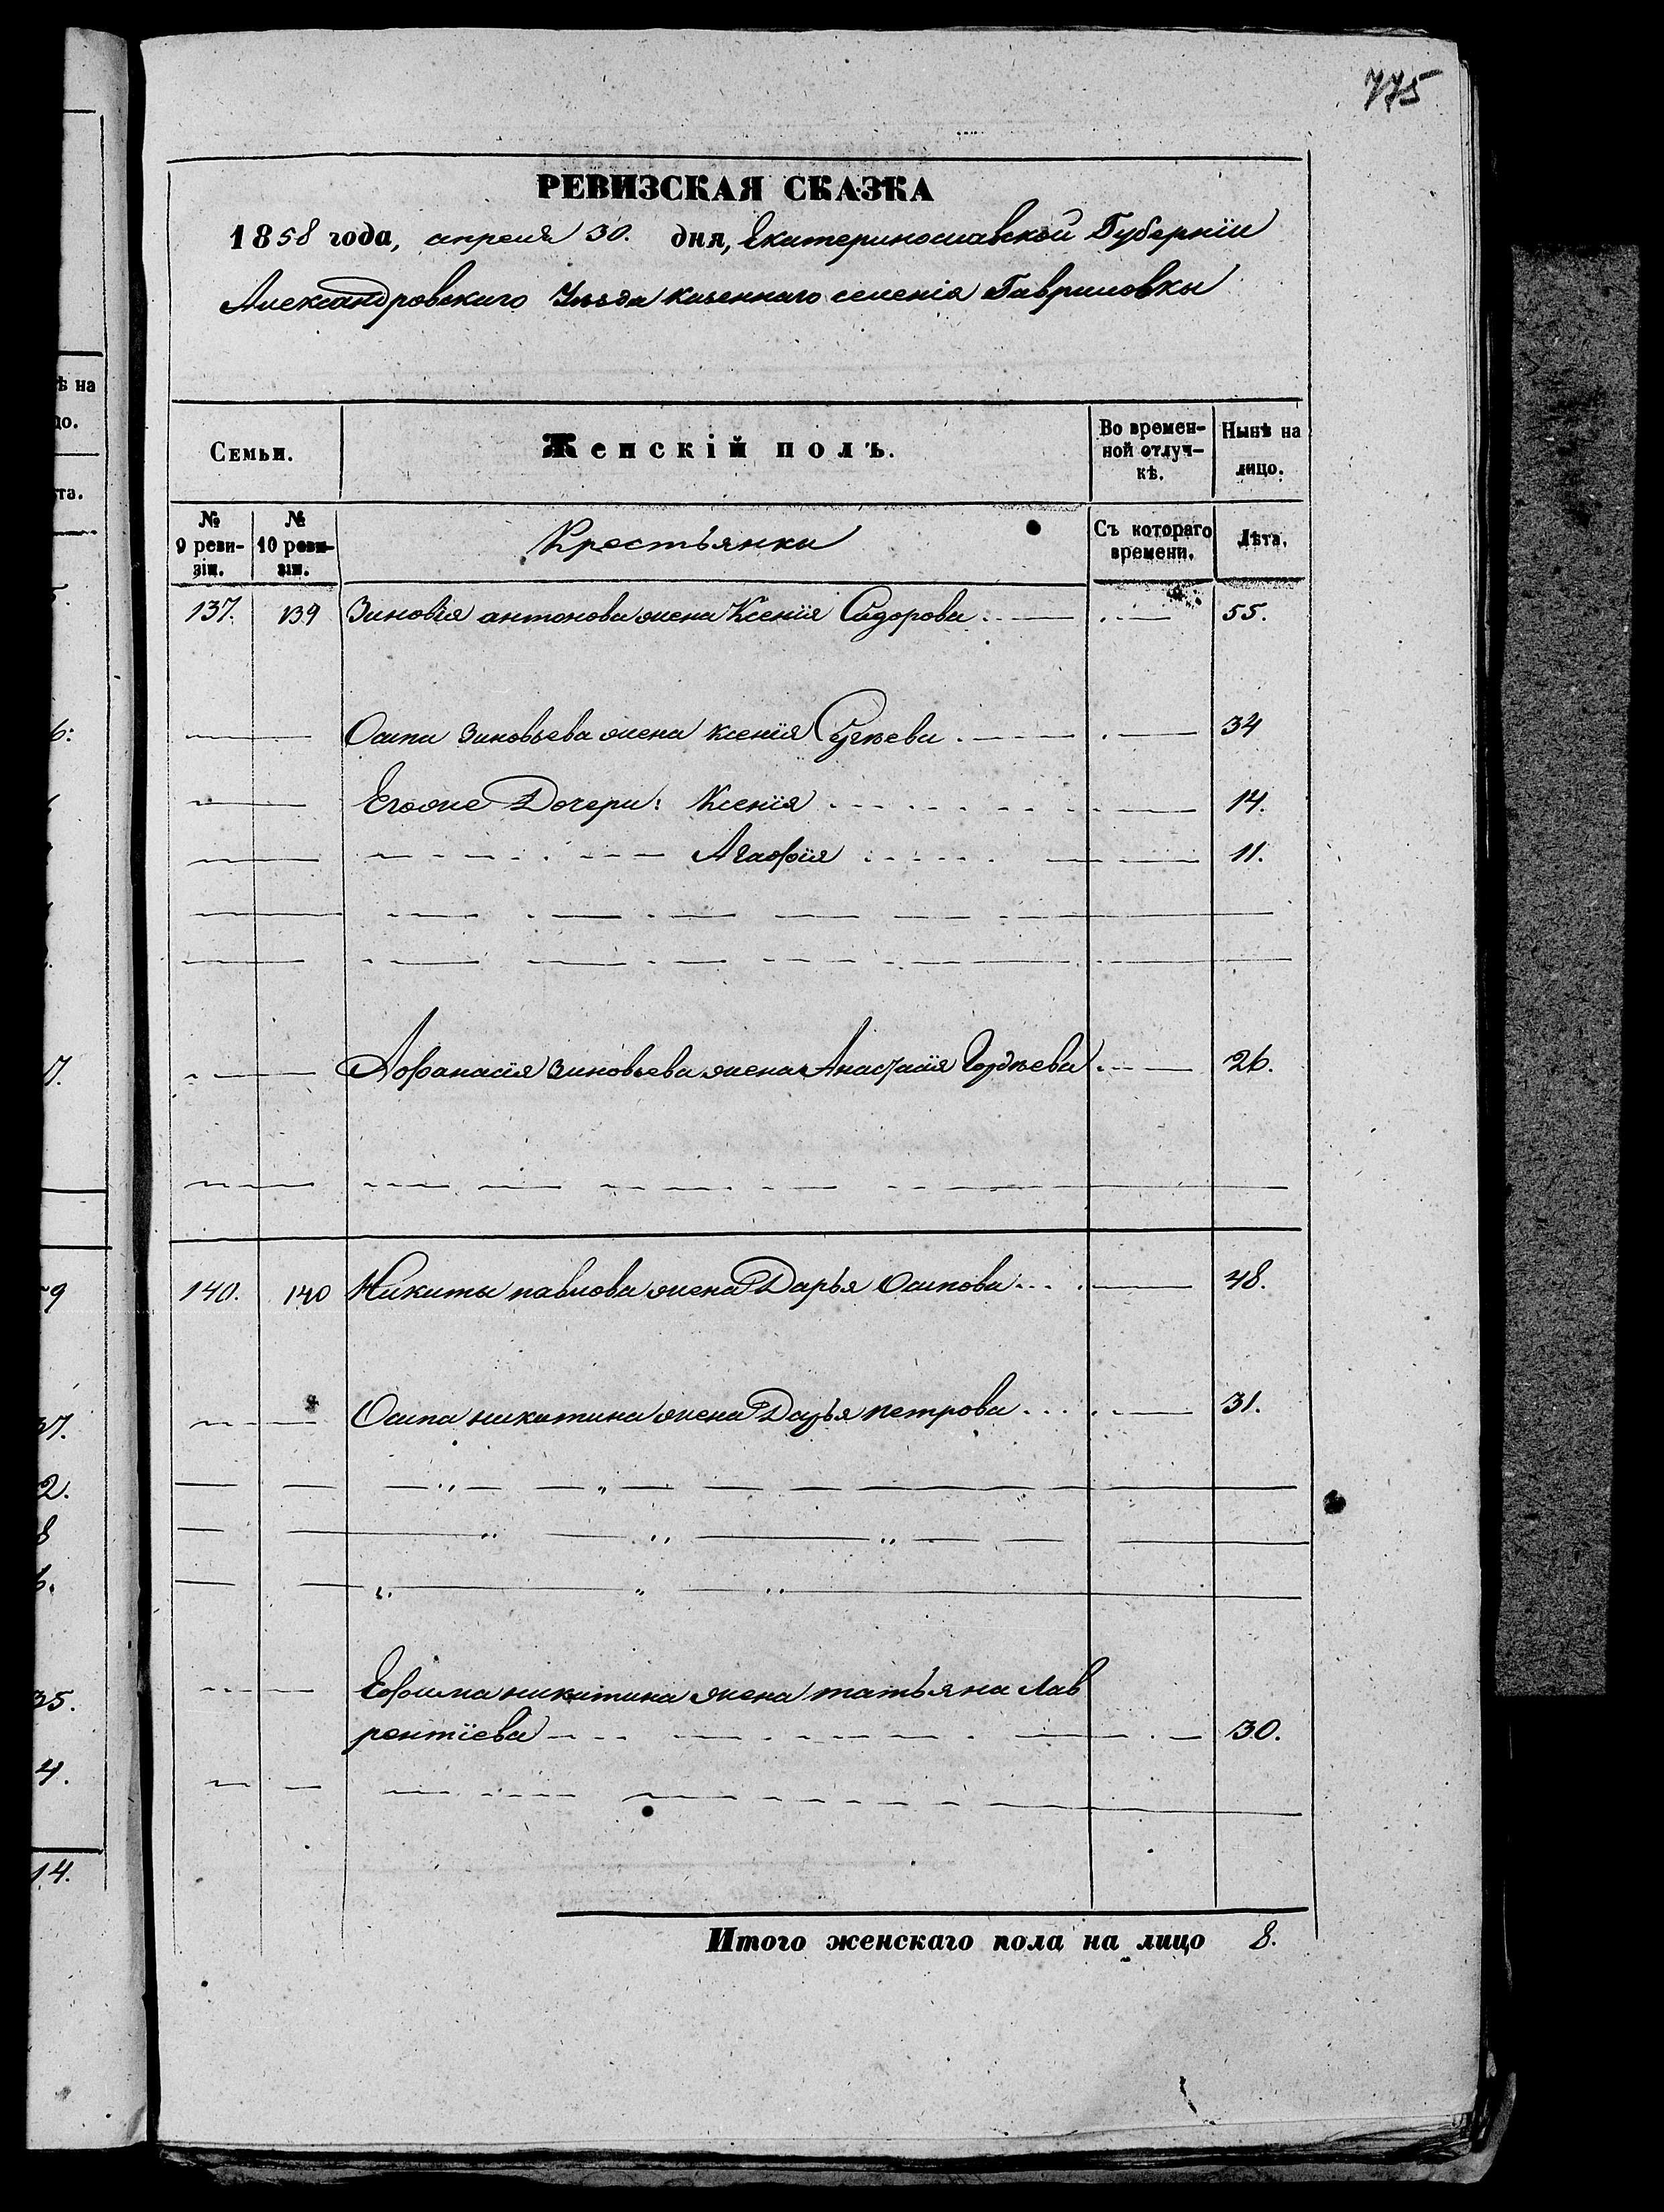 775
РЕВИЗСКАЯ СКАЗКА
1858 года, апреля 30. дня, Екатеринославской Губерніи
Александровскаго Уѣзда казеннаго селенія Гавриловки
Семьи.
Женскій полъ.
Во времен-
ной отлуч-
кѣ.
Нынѣ на
лицо.
№
9 реви-
зіи.
№
10 реви-
зіи.
Крестьянки
Съ котораго
времени.
Лѣта.
137. 139 Зиновія антонова жена Ксенія Сидорова 55.
Осипа Зиновьева жена Ксенія 34
Егоже Дочери: Ксенія 14.
Агафія 11.
Афанасія Зиновьева жена Анастасія Гордѣева 26.
140. 140 Никиты павлова жена Дарья Осипова 48.
Осипа никитина жена Дарья петрова 31.
Ефима никитина жена татьяна Лав
рентіева 30.
Итого женскаго пола на лицо 8.
ѣ на
цо.
та.
5.
6:
7.
9
37.
2.
8
6.
35.
4.
14.